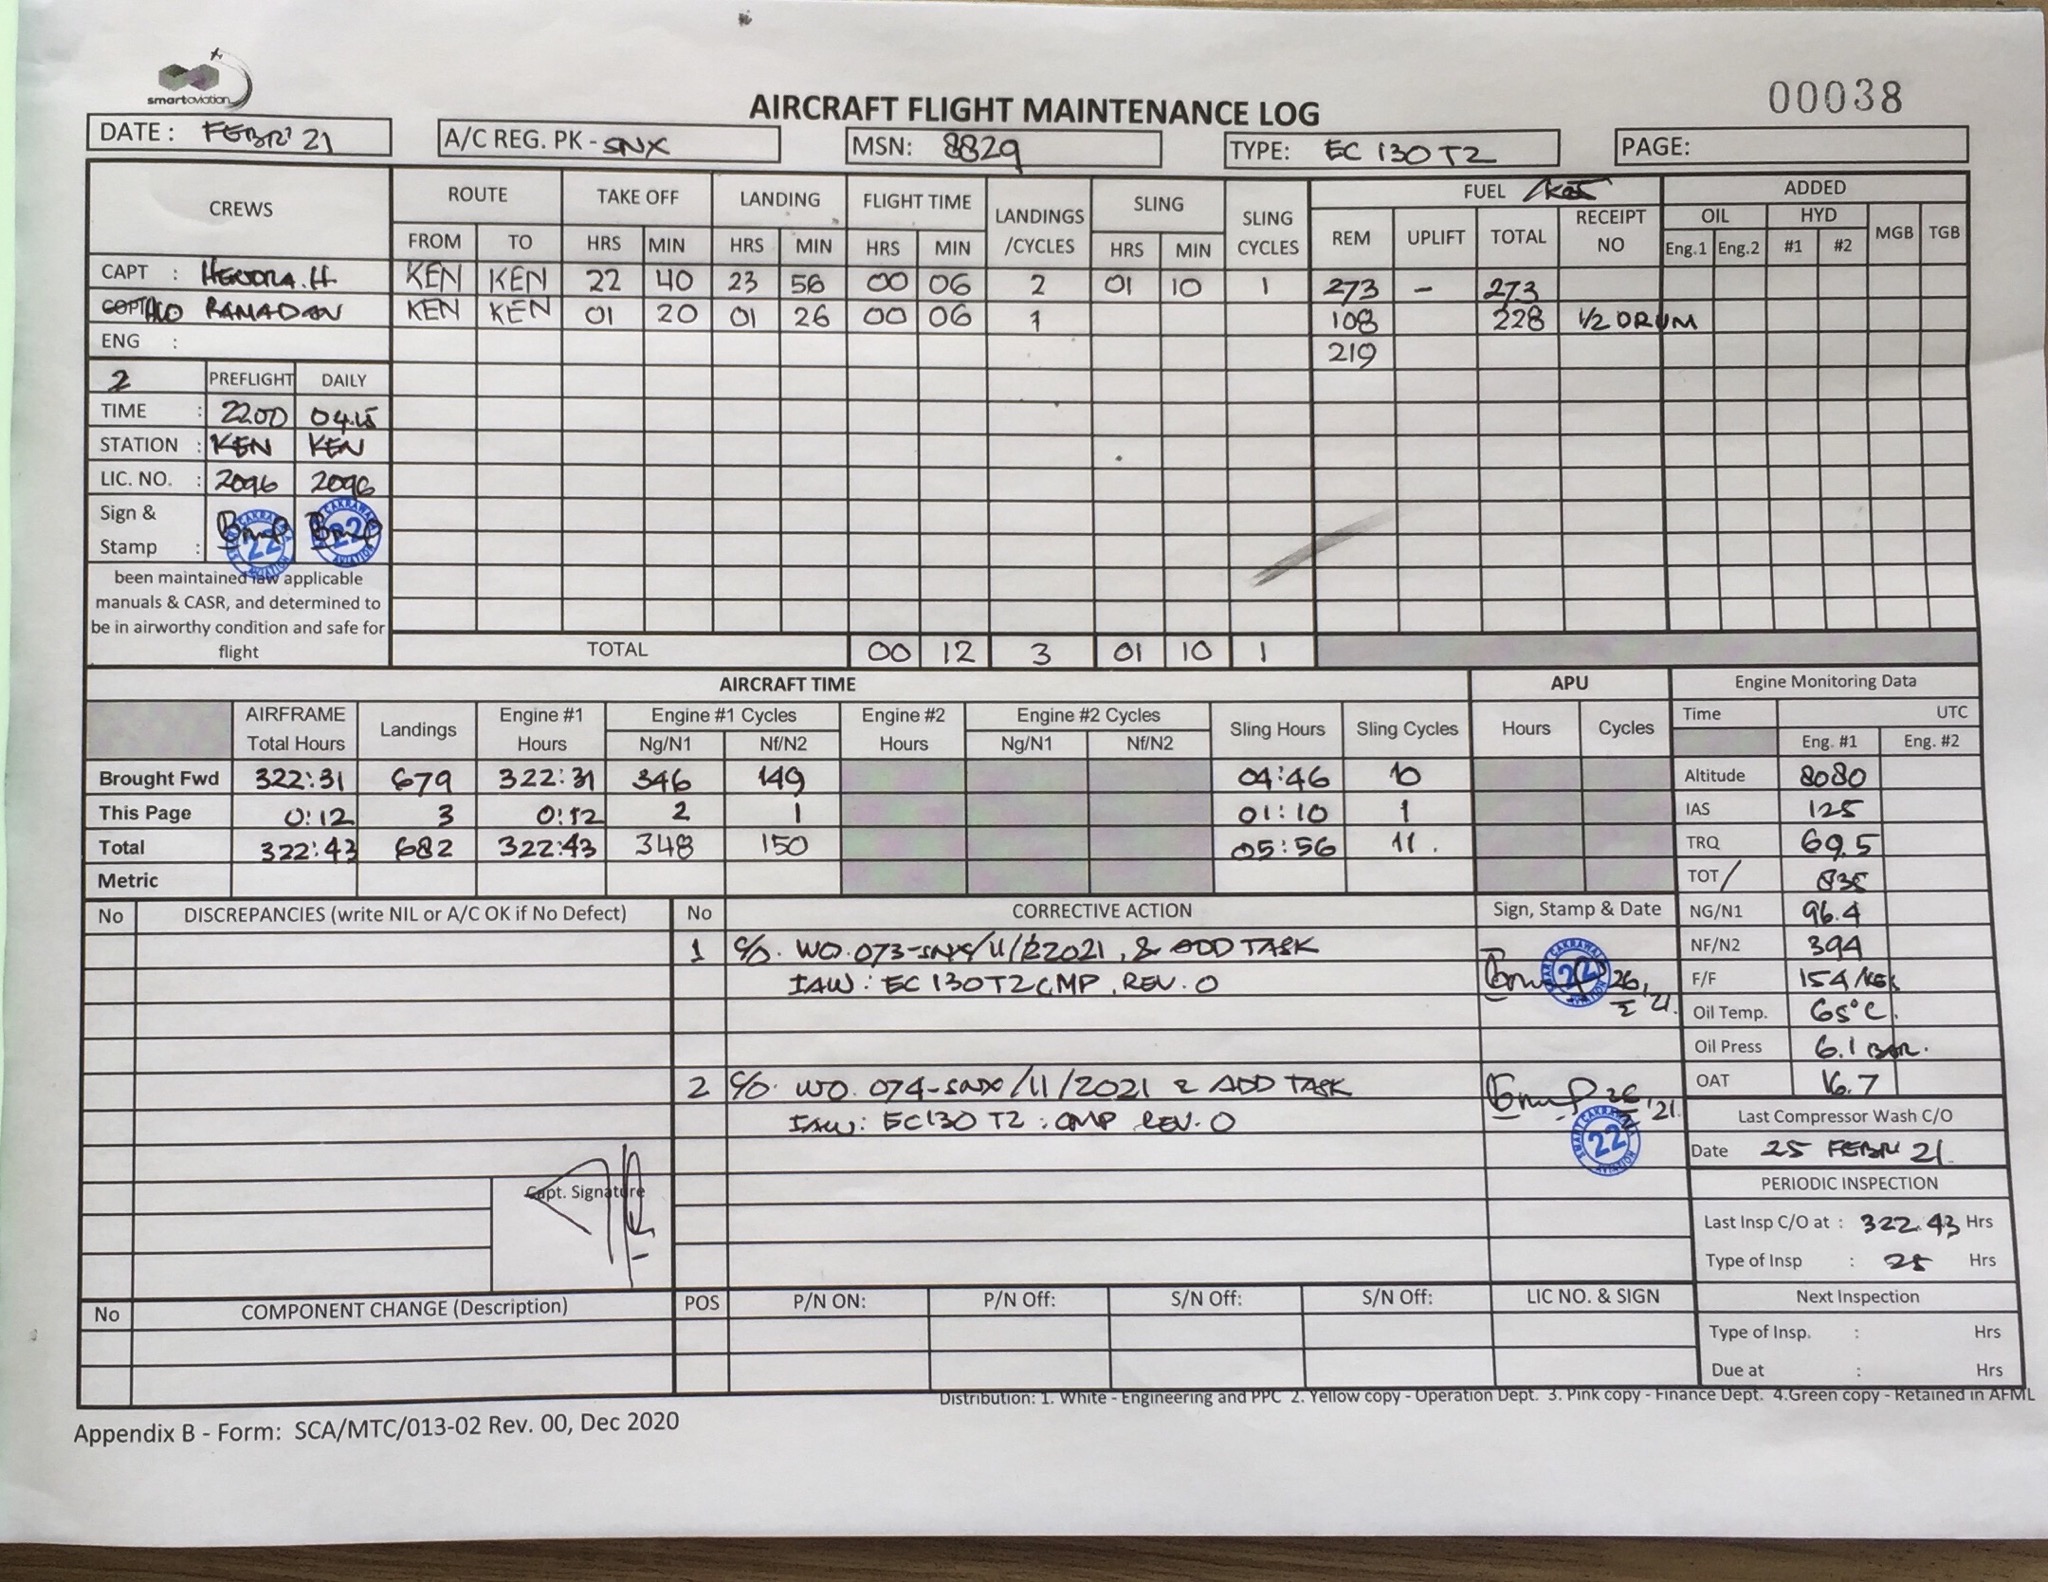 smartaviation
00038
AIRCRAFT FLIGHT MAINTENANCE LOG
DATE : FEBR' 21 A/C REG. PK - SNX MSN: 8829 TYPE: EC 130 T2 PAGE:
CREWS ROUTE TAKE OFF LANDING FLIGHT TIME LANDINGS /CYCLES SLING SLING CYCLES FUEL ADDED
FROM TO HRS MIN HRS MIN HRS MIN HRS MIN REM UPLIFT TOTAL RECEIPT NO OIL HYD MGB TGB
Eng.1 Eng.2 #1 #2
CAPT : HENDRA.H KEN KEN 22 40 23 56 00 06 2 01 10 1 273 - 273
RAMADAN KEN KEN 01 20 01 26 00 06 1 108 228 1/2 DRUM
ENG : 219
2 PREFLIGHT DAILY
TIME : 2200 04.15
STATION : KEN KEN
LIC. NO. : 2096 2096
Sign &
Stamp :
22 22
been maintained iaw applicable
manuals & CASR, and determined to
be in airworthy condition and safe for
flight
TOTAL 00 12 3 01 10 1
AIRCRAFT TIME APU Engine Monitoring Data
AIRFRAME Total Hours Landings Engine #1 Hours Engine #1 Cycles Engine #2 Hours Engine #2 Cycles Sling Hours Sling Cycles Hours Cycles Time UTC
Ng/N1 Nf/N2 Ng/N1 Nf/N2 Eng. #1 Eng. #2
Brought Fwd 322:31 679 322:31 346 149 04:46 10 Altitude 8080
This Page 0:12 3 0:12 2 1 01:10 1 IAS 125
Total 322:43 682 322:43 348 150 05:56 11. TRQ 69.5
Metric TOT/ 835
No DISCREPANCIES (write NIL or A/C OK if No Defect) No CORRECTIVE ACTION Sign, Stamp & Date NG/N1 96.4
1 C/O. WO.073-SNX/11/2021, & ADD TASK NF/N2 394
IAW : EC 130T2 CMP. REV. 0 F/F 154/KG
Oil Temp. 65°C.
Oil Press 6.1 BAR.
2 C/O. WO. 074-SNX/11/2021 & ADD TASK OAT 16.7
IAW: EC130 T2 : CMP REV. 0 Last Compressor Wash C/O
Date 25 FEBR 21
Capt. Signature PERIODIC INSPECTION
Last Insp C/O at : 322.43 Hrs
Type of Insp : 25 Hrs
No COMPONENT CHANGE (Description) POS P/N ON: P/N Off: S/N Off: S/N Off: LIC NO. & SIGN Next Inspection
Type of Insp. : Hrs
Due at : Hrs
Distribution: 1. White - Engineering and PPC 2. Yellow copy - Operation Dept. 3. Pink copy - Finance Dept. 4.Green copy - Retained in AFML
Appendix B - Form: SCA/MTC/013-02 Rev. 00, Dec 2020